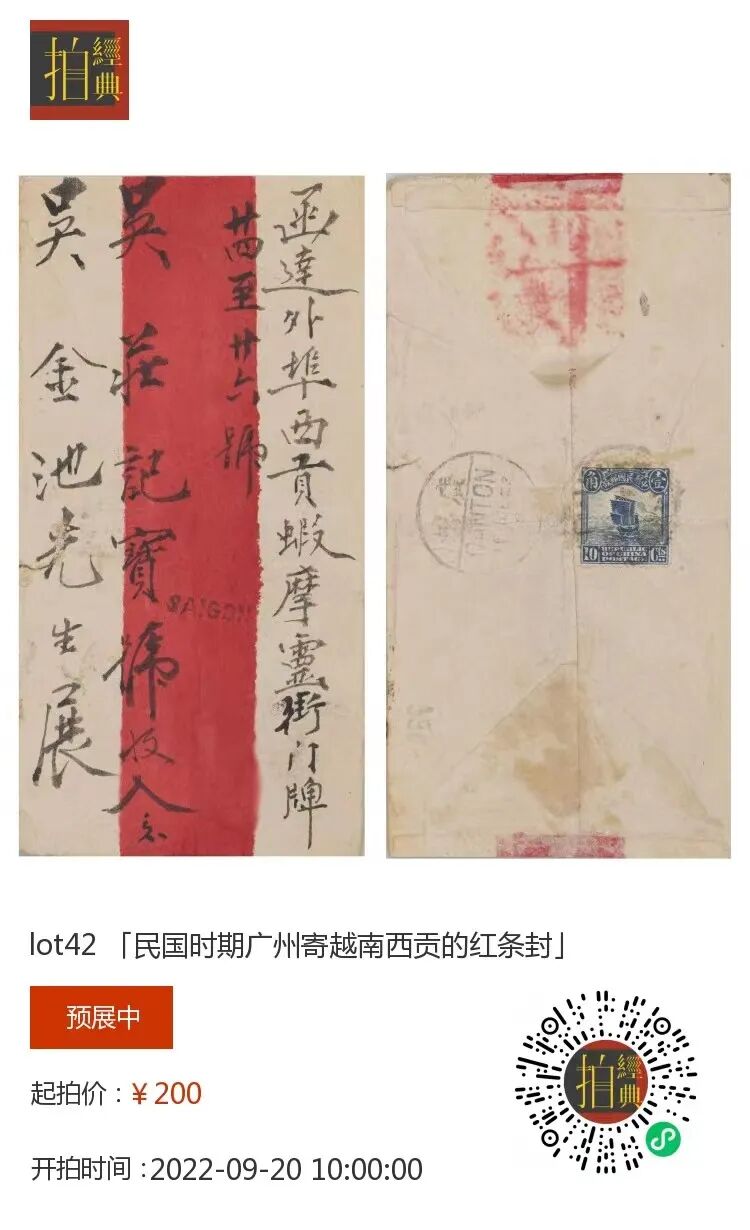 拍 經典
函達外埠西貢蝦摩靈街門牌
廿四至廿六號
吳莊記寶號收入
吳金池先生展
SAIGON
CANTON
角 壹
10 Cts
REPUBLIC
OF CHINA
POSTAGE
lot42 「民国时期广州寄越南西贡的红条封」
预展中
起拍价：￥200
开拍时间：2022-09-20 10:00:00
拍 經典